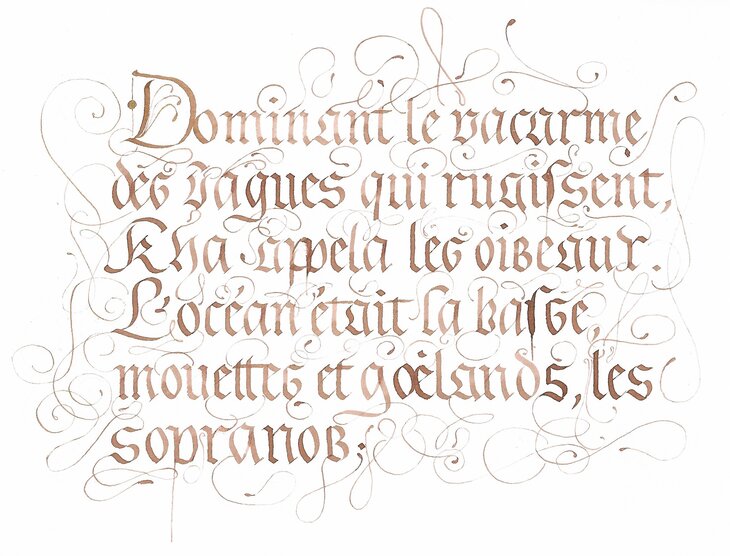 Dominant le vacarme
des vagues qui rugissent,
Kha appela les oiseaux.
L'océan était la basse,
mouettes et goëlands, les
sopranos;